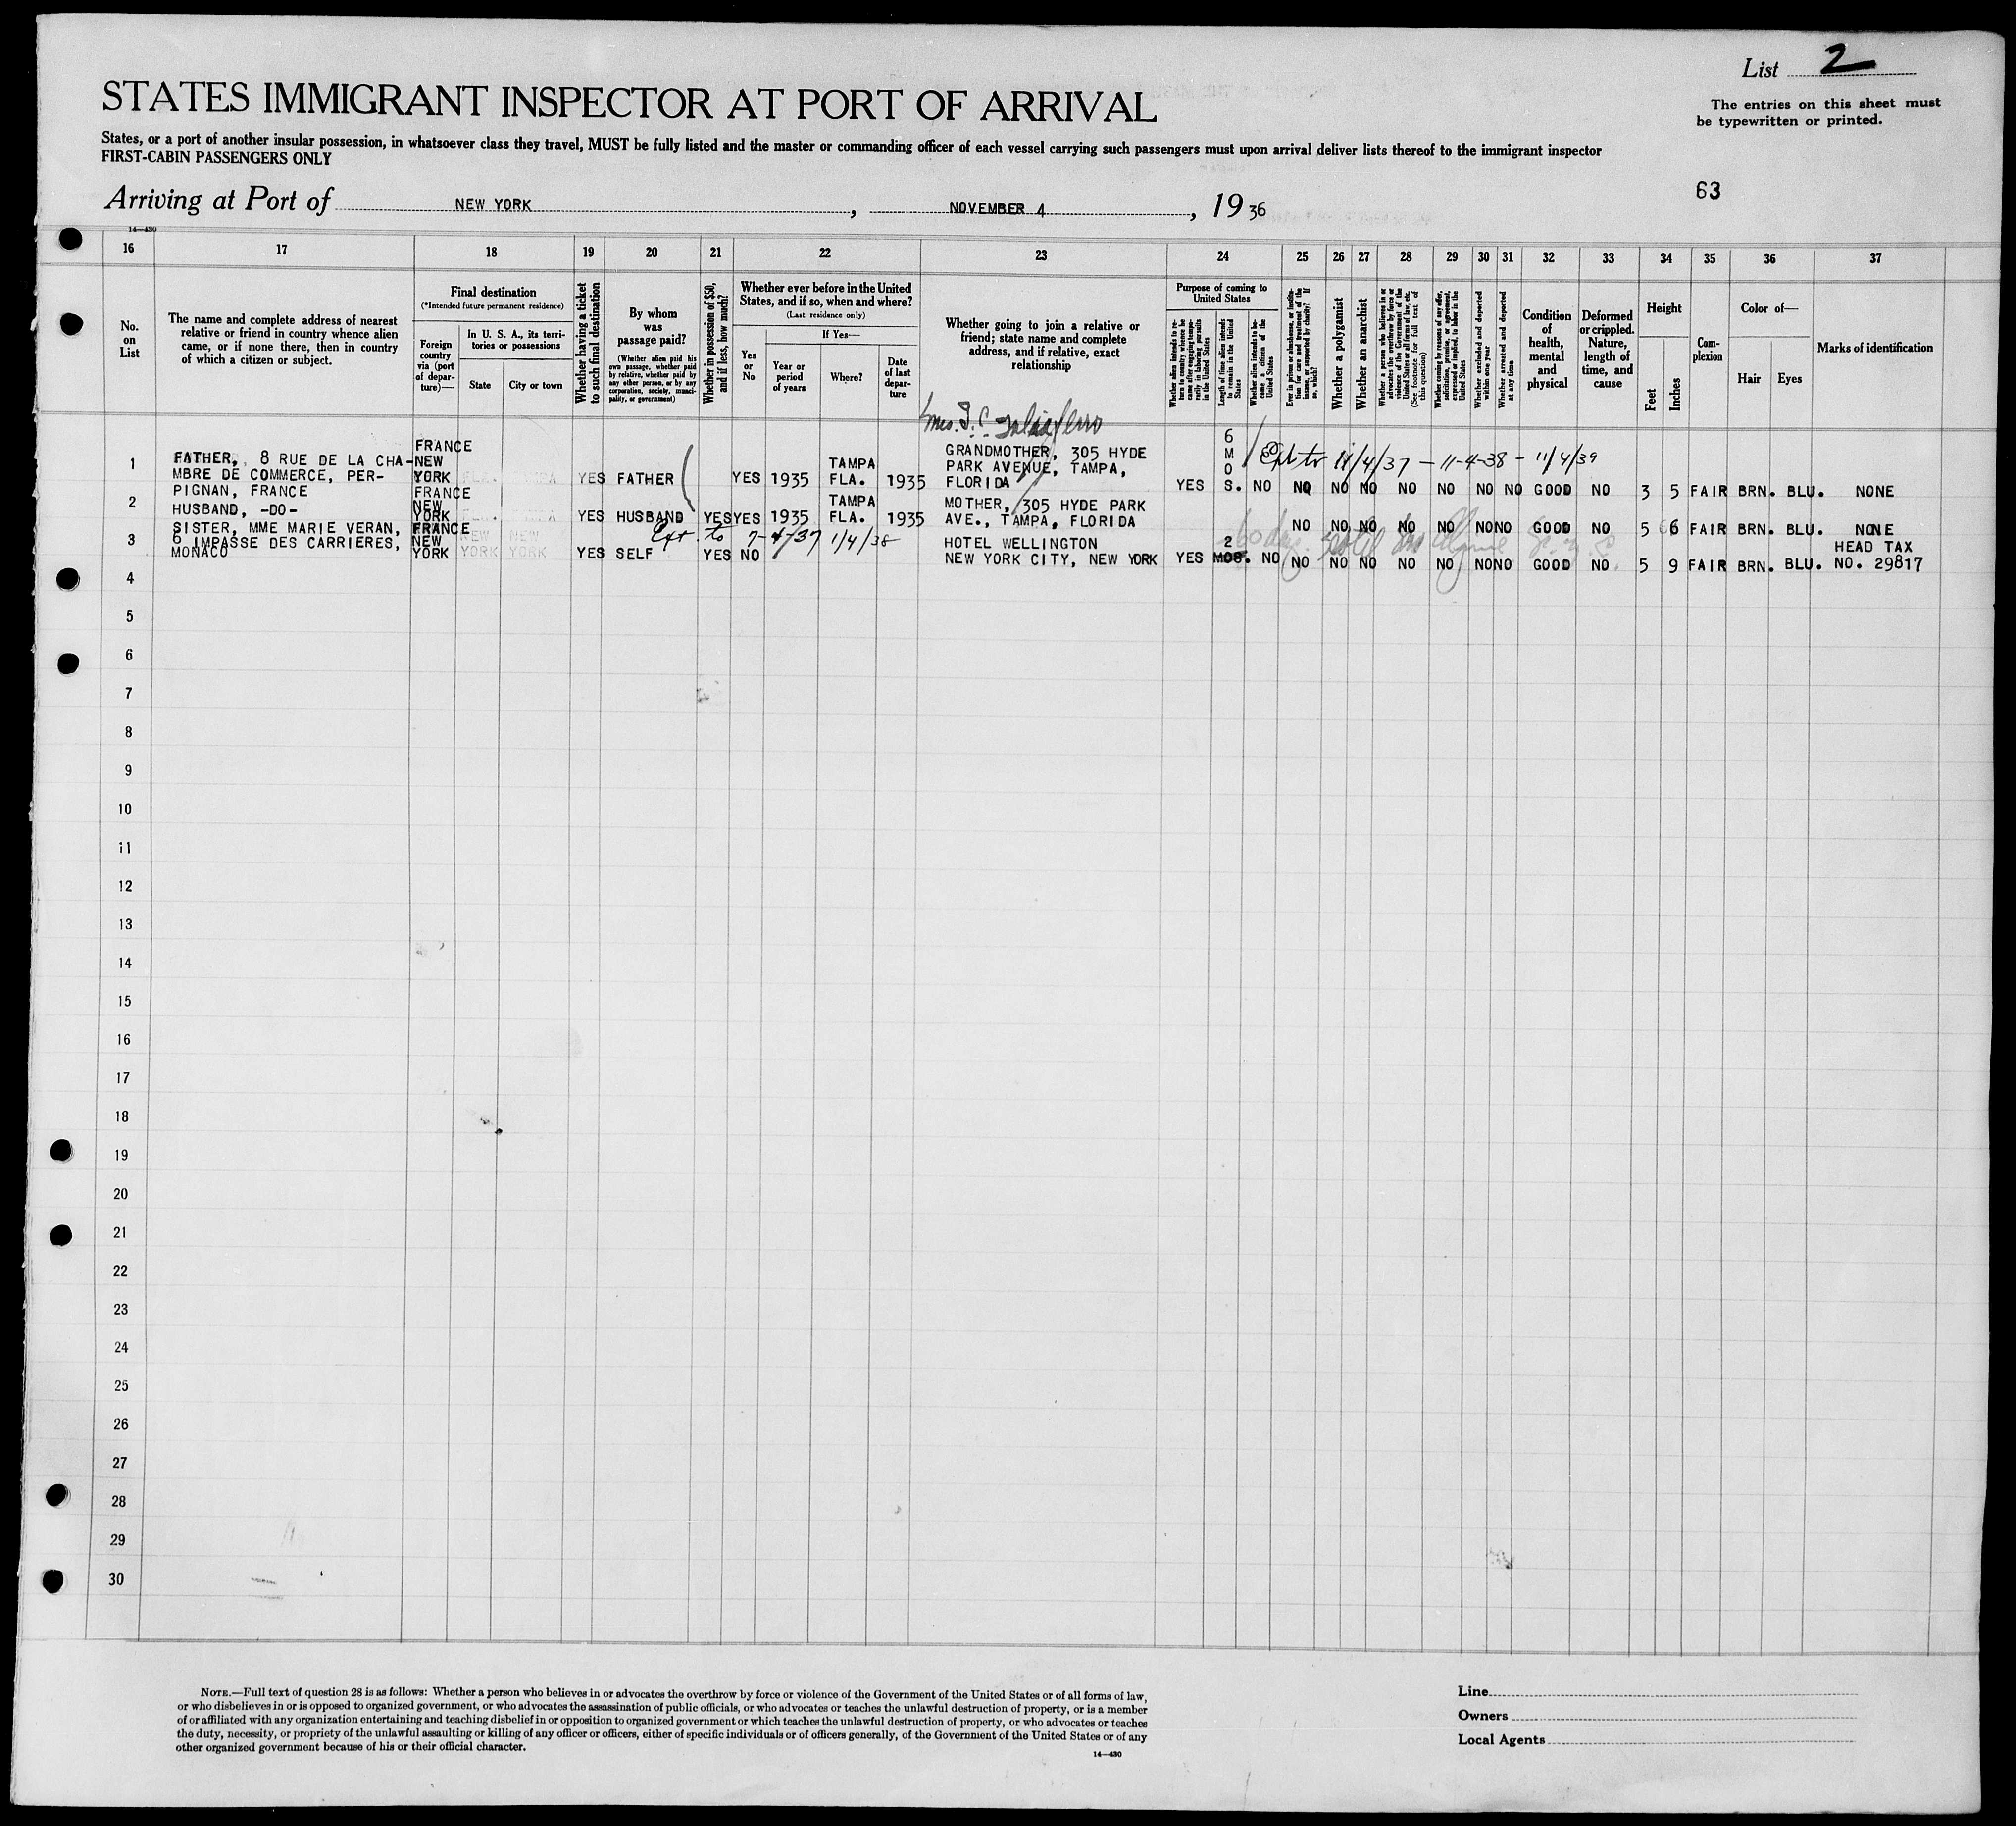 List 2
STATES IMMIGRANT INSPECTOR AT PORT OF ARRIVAL
The entries on this sheet must
be typewritten or printed.
States, or a port of another insular possession, in whatsoever class they travel, MUST be fully listed and the master or commanding officer of each vessel carrying such passengers must upon arrival deliver lists thereof to the immigrant inspector
FIRST-CABIN PASSENGERS ONLY
63
Arriving at Port of NEW YORK, NOVEMBER 4, 19 36
14—430
16 17 18 19 20 21 22 23 24 25 26 27 28 29 30 31 32 33 34 35 36 37
No. on List
The name and complete address of nearest
relative or friend in country whence alien
came, or if none there, then in country
of which a citizen or subject.
Final destination
(*Intended future permanent residence)
Foreign country via (port of departure)—
In U. S. A., its territories or possessions
State
City or town
Whether having a ticket to such final destination
By whom was passage paid?
(Whether alien paid his own passage, whether paid by relative, whether paid by any other person, or by any corporation, society, municipality, or government)
Whether in possession of $50, and if less, how much?
Whether ever before in the United States, and if so, when and where?
(Last residence only)
Yes or No
If Yes—
Year or period of years
Where?
Date of last departure
Whether going to join a relative or
friend; state name and complete
address, and if relative, exact
relationship
Purpose of coming to United States
Whether alien intends to return to country whence he came after engaging temporarily in laboring pursuits in the United States
Length of time alien intends to remain in the United States
Whether alien intends to become a citizen of the United States
Ever in prison or almshouse, or institution for care and treatment of the insane, or supported by charity? If so, which?
Whether a polygamist
Whether an anarchist
Whether a person who believes in or advocates the overthrow by force or violence of the Government of the United States or all forms of law, etc. (See footnote for full text of this question)
Whether coming by reasons of any offer, solicitation, promise, or agreement, expressed or implied, to labor in the United States
Whether excluded and deported within one year
Whether arrested and deported at any time
Condition of health, mental and physical
Deformed or crippled. Nature, length of time, and cause
Height
Feet
Inches
Complexion
Color of—
Hair
Eyes
Marks of identification
Mrs.
1 FATHER, 8 RUE DE LA CHA-
MBRE DE COMMERCE, PER-
PIGNAN, FRANCE
FRANCE
NEW
YORK
YES FATHER YES 1935 TAMPA
FLA. 1935
GRANDMOTHER, 305 HYDE
PARK AVENUE, TAMPA,
FLORIDA
YES 6 MOS. NO NO NO NO NO NO NO NO GOOD NO 3 5 FAIR BRN. BLU. NONE
11/4/37 — 11-4-38 — 11/4/39
2 HUSBAND, -DO-
FRANCE
NEW
YORK
YES HUSBAND YES YES 1935 TAMPA
FLA. 1935
MOTHER, 305 HYDE PARK
AVE., TAMPA, FLORIDA
NO NO NO NO NO NO NO GOOD NO 5 6 FAIR BRN. BLU. NONE
Ext. to 7-4-37 1/4/38
3 SISTER, MME MARIE VERAN,
6 IMPASSE DES CARRIERES,
MONACO
FRANCE
NEW
YORK
NEW
YORK
NEW
YORK
YES SELF YES NO
HOTEL WELLINGTON
NEW YORK CITY, NEW YORK
YES 2 MOS. NO NO NO NO NO NO NO NO GOOD NO 5 9 FAIR BRN. BLU. HEAD TAX
NO. 29817
60 days
4
5
6
7
8
9
10
11
12
13
14
15
16
17
18
19
20
21
22
23
24
25
26
27
28
29
30
NOTE.—Full text of question 28 is as follows: Whether a person who believes in or advocates the overthrow by force or violence of the Government of the United States or of all forms of law,
or who disbelieves in or is opposed to organized government, or who advocates the assassination of public officials, or who advocates or teaches the unlawful destruction of property, or is a member
of or affiliated with any organization entertaining and teaching disbelief in or opposition to organized government or which teaches the unlawful destruction of property, or who advocates or teaches
the duty, necessity, or propriety of the unlawful assaulting or killing of any officer or officers, either of specific individuals or of officers generally, of the Government of the United States or of any
other organized government because of his or their official character.
14—430
Line
Owners
Local Agents